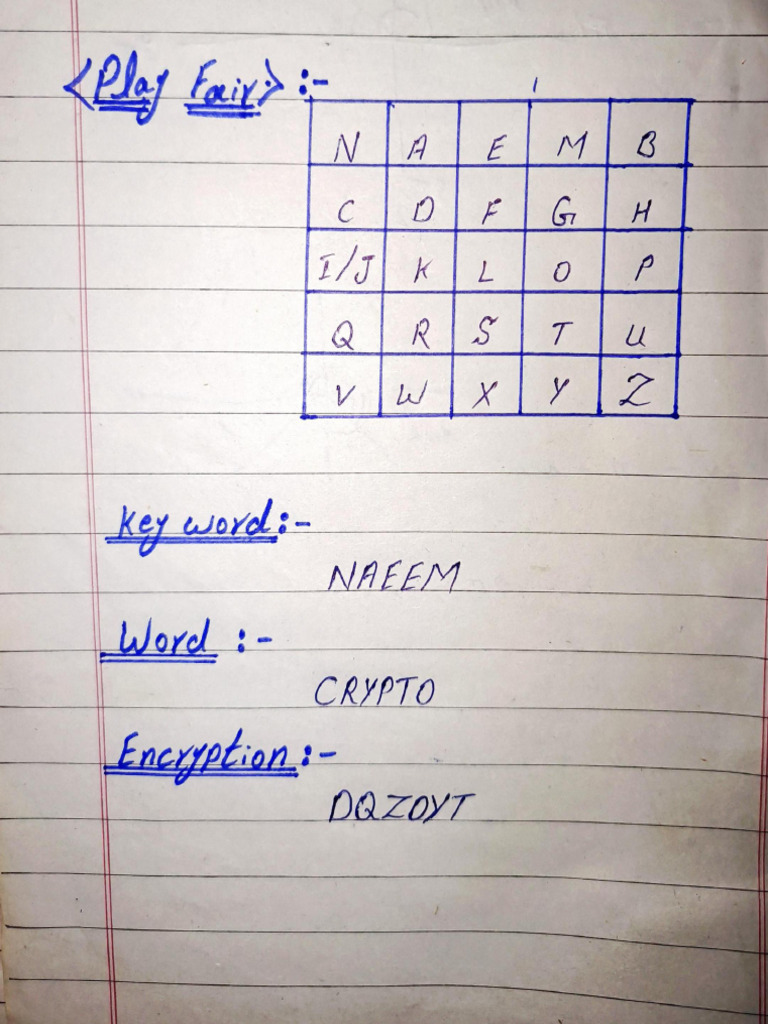 <Play Fair> :-
N A E M B
C D F G H
I/J K L O P
Q R S T U
V W X Y Z
Key word :-
NAEEM
Word :-
CRYPTO
Encryption :-
DQZOYT